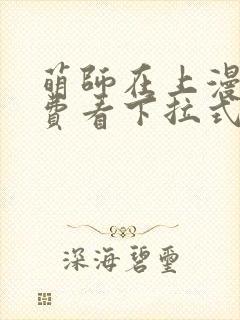 萌師在上漫
費看下拉式
深海碧璽